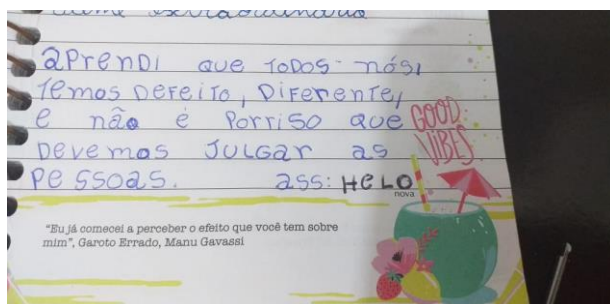 filme extraordinário
aprendi que todos nós,
temos defeito, diferente,
e não é porriso que
devemos julgar as
pessoas. ass: HeLO
nova
GOOD
VIBES
"Eu já comecei a perceber o efeito que você tem sobre
mim", Garoto Errado, Manu Gavassi